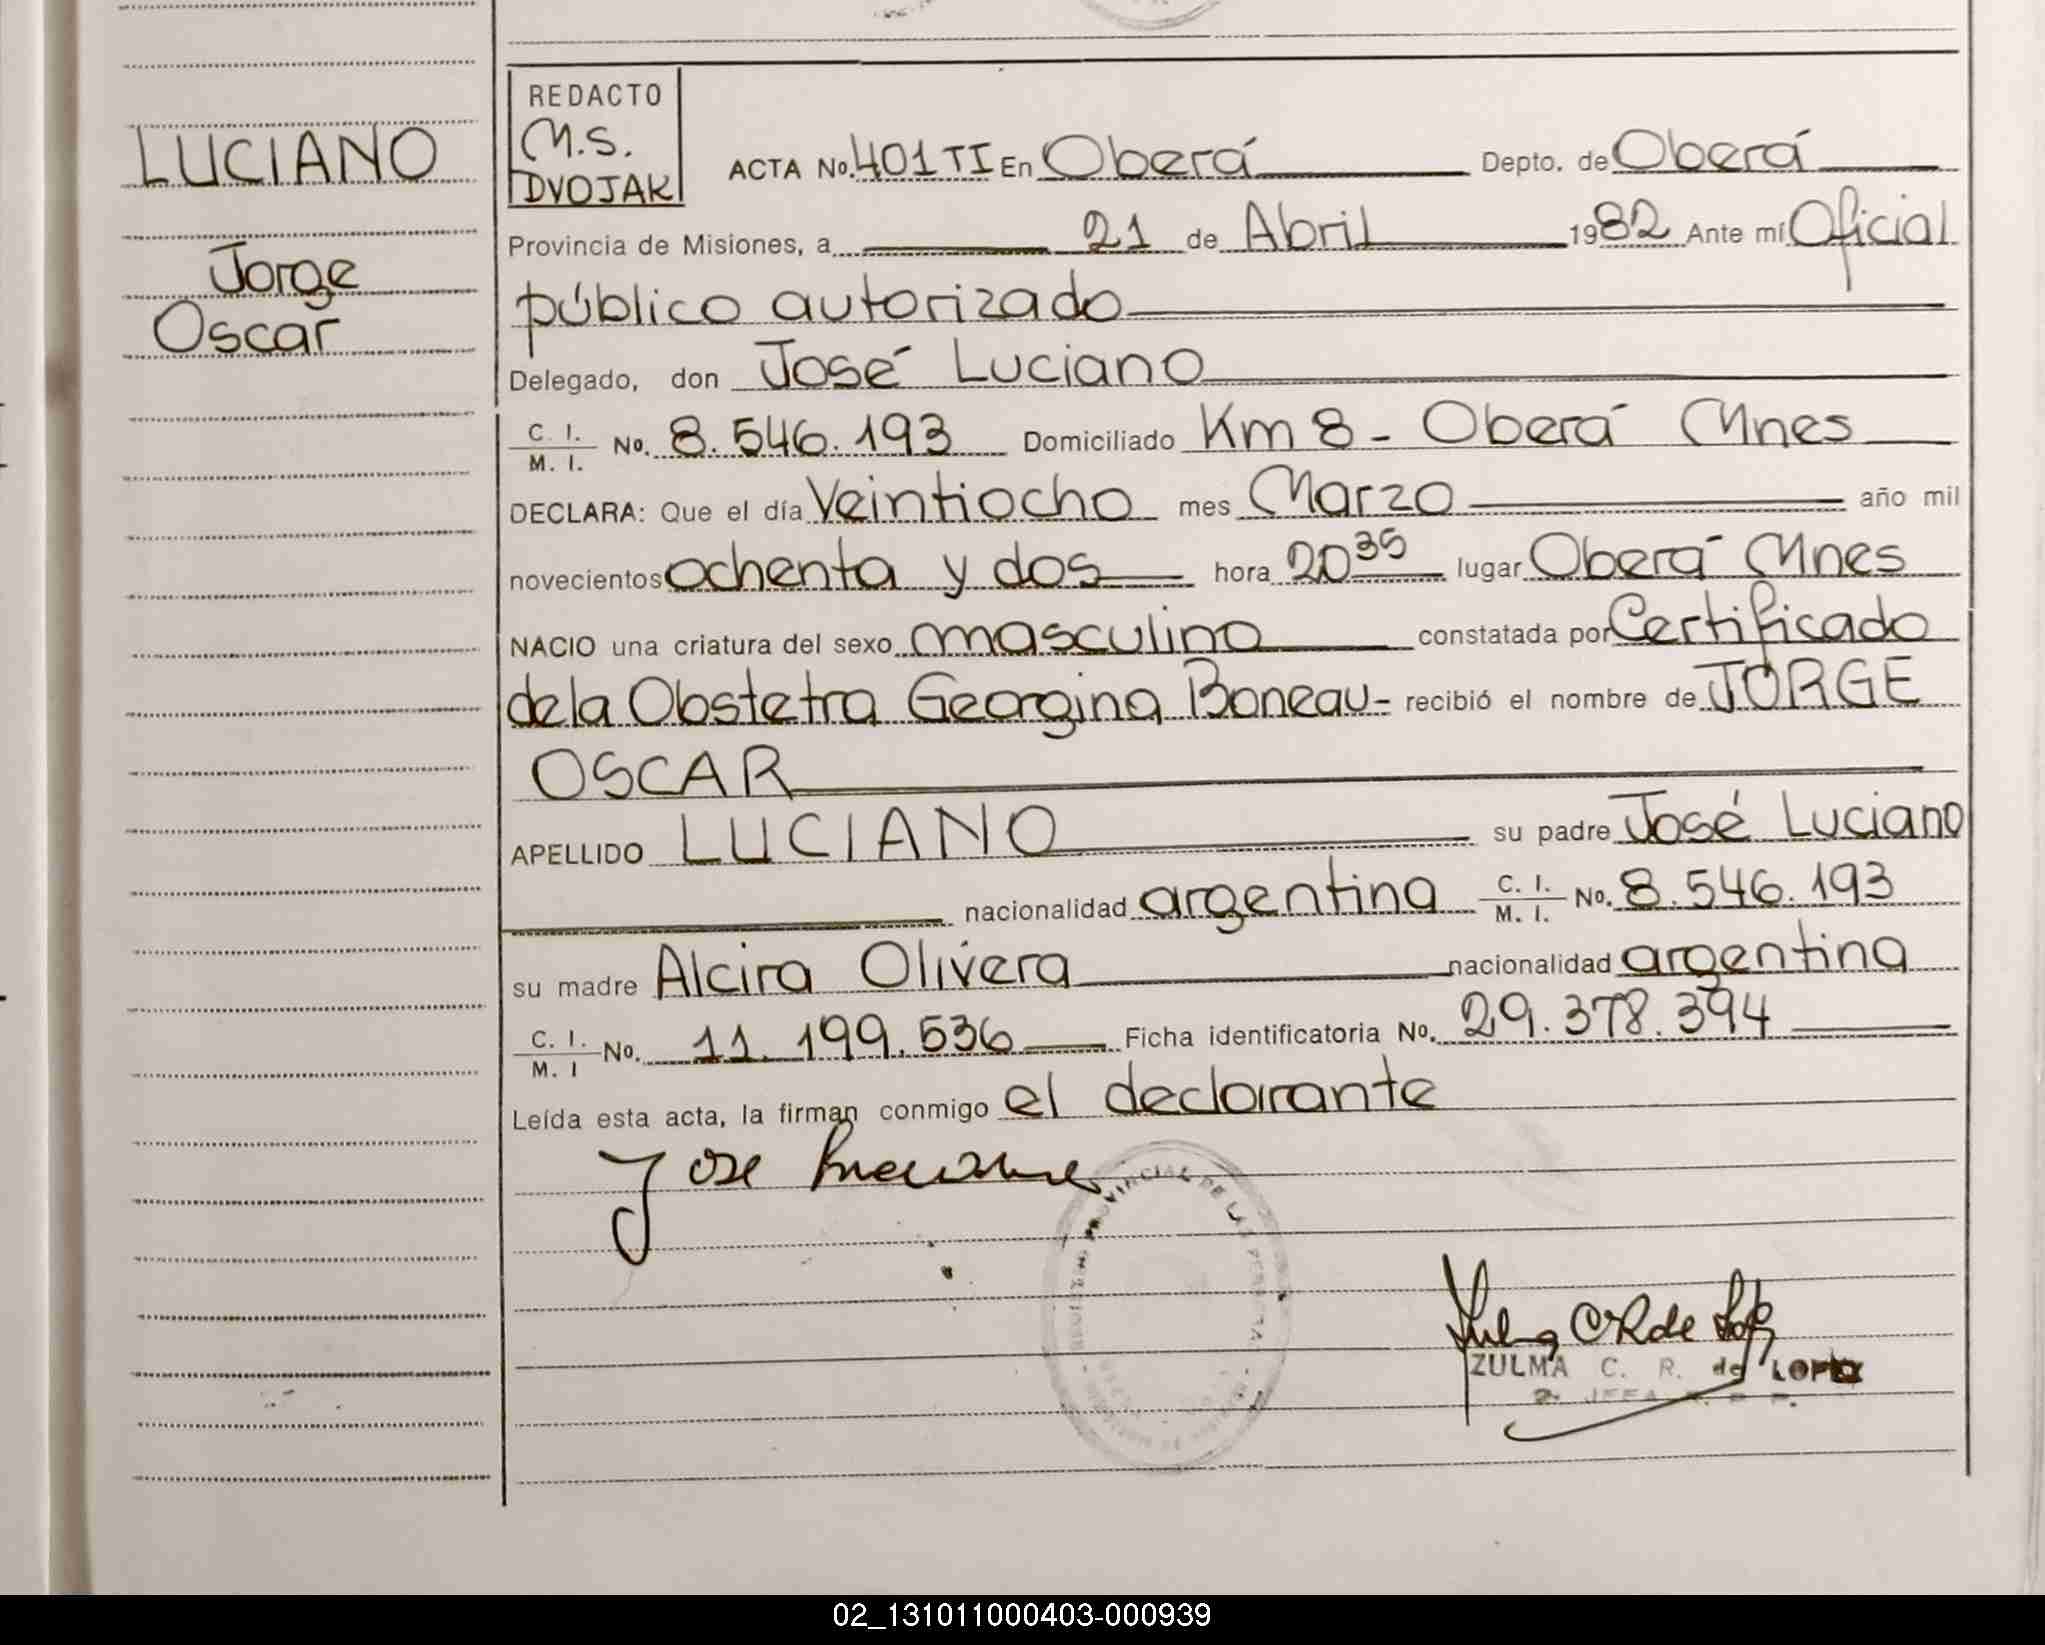 LUCIANO
Jorge
Oscar
REDACTO
M.S.
DVOJAK
ACTA No. 401 TI En Oberá Depto. de Oberá
Provincia de Misiones, a 21 de Abril 1982 Ante mí Oficial
público autorizado
Delegado, don José Luciano
C. I. / M. I. No. 8.546.193 Domiciliado Km 8 - Oberá Mnes
DECLARA: Que el día Veintiocho mes Marzo año mil
novecientos ochenta y dos hora 20 35 lugar Oberá Mnes
NACIO una criatura del sexo masculino constatada por Certificado
de la Obstetra Georgina Boneau - recibió el nombre de JORGE
OSCAR
APELLIDO LUCIANO su padre José Luciano
nacionalidad argentina C. I. / M. I. No. 8.546.193
su madre Alcira Olivera nacionalidad argentina
C. I. / M. I No. 11.199.536 Ficha identificatoria No. 29.378.394
Leída esta acta, la firman conmigo el declarante
Jose Luciano
PROVINCIAL DE LAS PERSONAS
ZULMA C. R. de LOPEZ
02_131011000403-000939